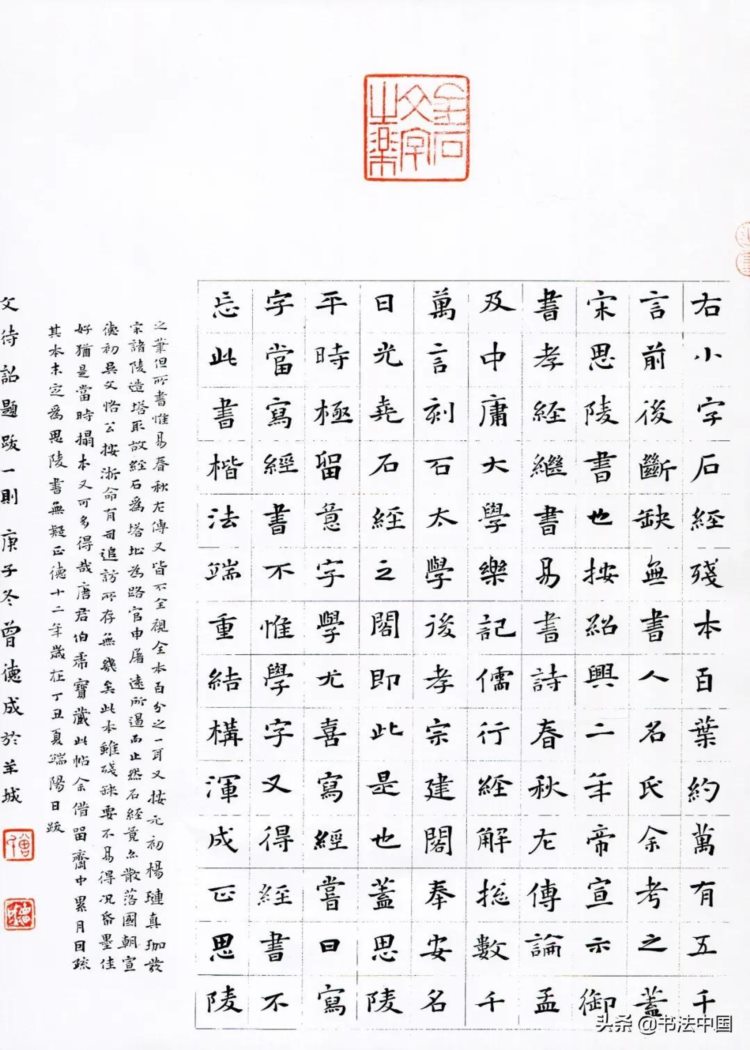 金石
文字
之樂
右小字石經殘本百葉約萬有五千
言前後斷缺無書人名氏余考之蓋
宋思陵書也按紹興二年帝宣示御
書孝經繼書易書詩春秋左傳論孟
及中庸大學樂記儒行經解揔數千
萬言刻石太學後孝宗建閣奉安名
曰光堯石經之閣即此是也蓋思陵
平時極留意字學尤喜寫經嘗曰寫
字當寫經書不惟學字又得經書不
忘此書楷法端重結構渾成正思陵
之筆但所書惟易春秋左傳又皆不全視全本百分之一耳又按元初楊璉真珈發
宋諸陵造塔取故經石為塔址為路官申屠遠所遏而止然石經竟亦散落國朝宣
德初吳文恪公按浙命有司追訪所存無幾矣此本雖殘缺要不易得況紙墨佳
好猶是當時搨本又可多得哉唐君伯虎寶藏此帖余借留齋中累月因疏
其本末定為思陵書無疑正德十二年歲在丁丑夏端陽日跋
文待詔題跋一則庚子冬曾德成於羊城
头条 @书法中国